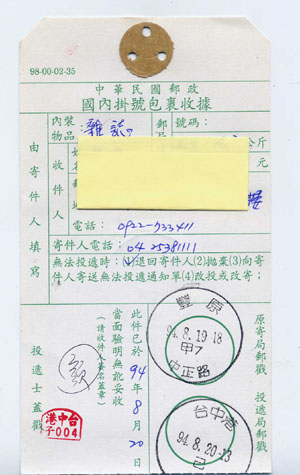 98-00-02-35
中華民國郵政
國內掛號包裹收據
內裝物品: 雜誌
郵局
號碼:
公斤
元
由寄件人填寫
收件人
電話: 0922-733411
寄件人電話: 04 25381111
無法投遞時:(1)退回寄件人(2)拋棄(3)向寄
件人寄送無法投遞通知單(4)改投或改寄:
此件已於94年8月20日
當面驗明無訛妥收
(請收件人簽名蓋章)
投遞士蓋戳
台中港
子004
原寄局郵戳
豐原
94.8.19.18
甲7
中正路
投遞局郵戳
台中港
94.8.20.-13
己